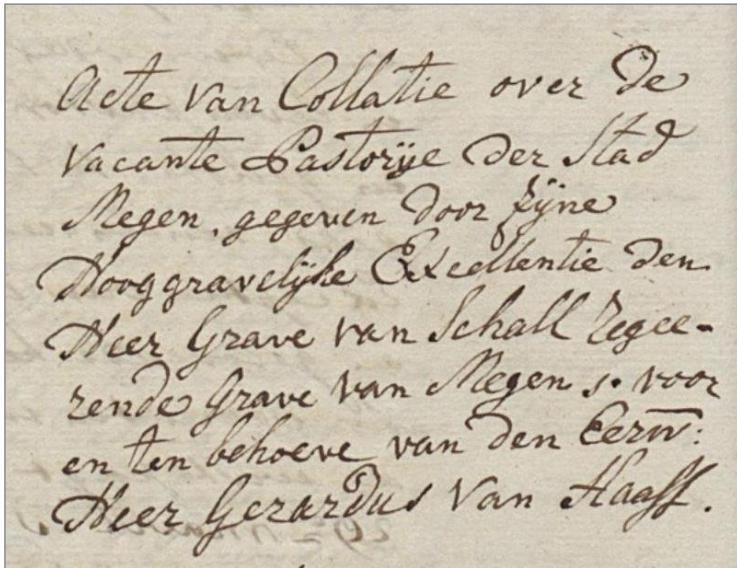 Acte van Collatie over de
vacante Pastorije der Stad
Megen, gegeven door zijne
Hooggravelijke Excellentie den
Heer Grave van Schall regee-
rende Grave van Megen s. voor
en ten behoeve van den Eerw:
Heer Gerardus van Haaff.